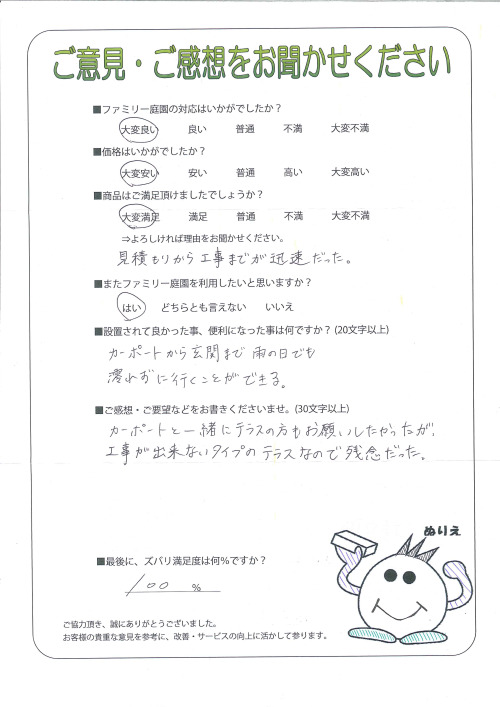 ご意見・ご感想をお聞かせください
■ファミリー庭園の対応はいかがでしたか？
大変良い 良い 普通 不満 大変不満
■価格はいかがでしたか？
大変安い 安い 普通 高い 大変高い
■商品はご満足頂けましたでしょうか？
大変満足 満足 普通 不満 大変不満
⇒よろしければ理由をお聞かせください。
見積もりから工事までが迅速だった。
■またファミリー庭園を利用したいと思いますか？
はい どちらとも言えない いいえ
■設置されて良かった事、便利になった事は何ですか？(20文字以上)
カーポートから玄関まで雨の日でも
濡れずに行くことができる。
■ご感想・ご要望などをお書きくださいませ。(30文字以上)
カーポートと一緒にテラスの方もお願いしたかったが、
工事が出来ないタイプのテラスなので残念だった。
ぬりえ
■最後に、ズバリ満足度は何％ですか？
100 %
ご協力頂き、誠にありがとうございました。
お客様の貴重な意見を参考に、改善・サービスの向上に活かして参ります。